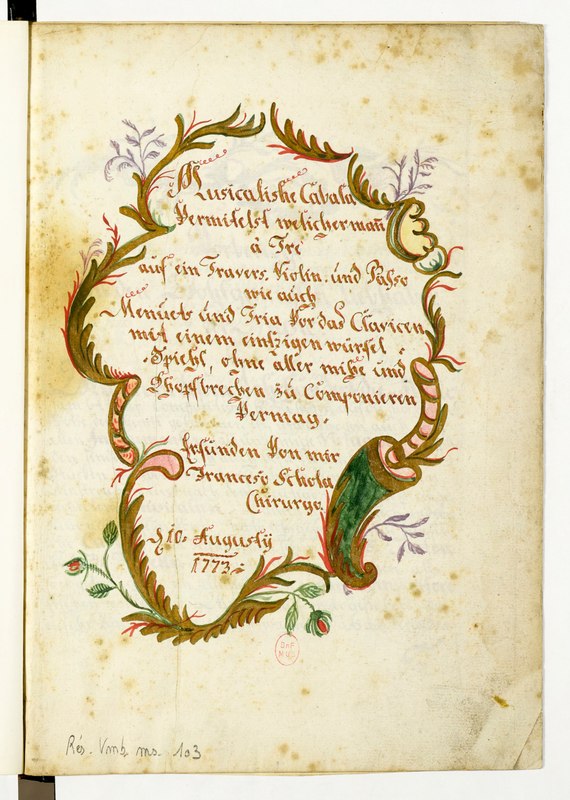 Musicalishe Cabala
Vermitelst welicher man̅
à Tre
auf ein Travers. Violin. und Paßo
wie auch
Menuets und Tria Vor das Clavicen
mit einem eintzigen würfel
Spiehl, ohne aller mihe und
Khopfbrechen zu Componieren
Vermag.
Erfunden Von mir
Francesco Schola
Chirurgo
d 10. Augusty
1773.
BnF
MUS
Rés. Vmb. ms. 103